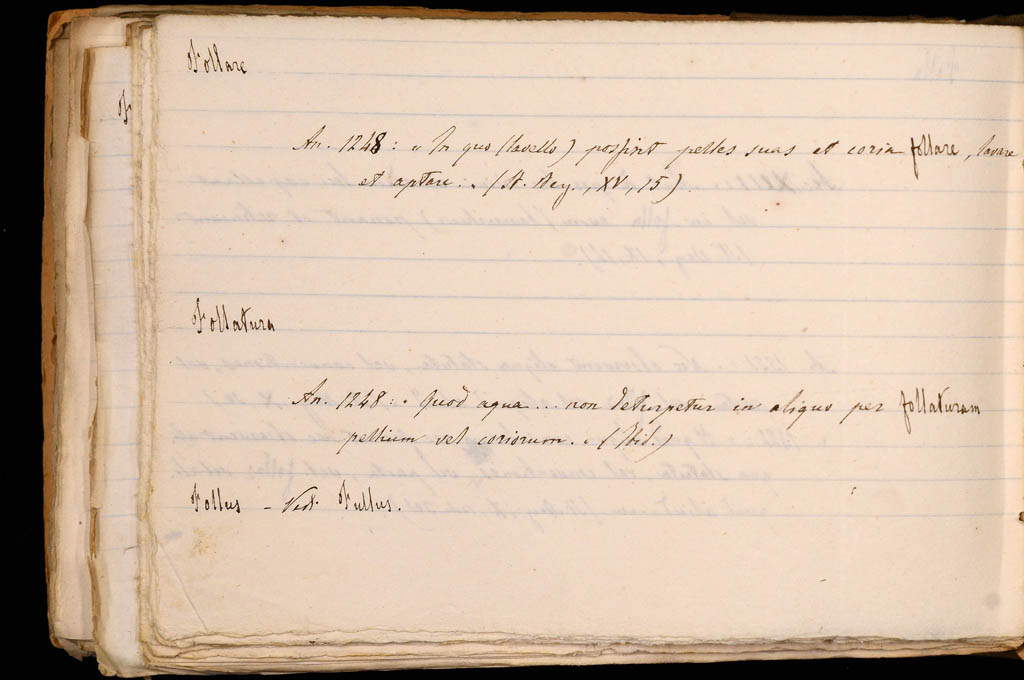 Follare
An. 1248: « In quo (lavello) possint pelles suas et coria follare, lavare
et aptare. » (St. Reg., XV, 15).
Follatura
An. 1248: « Quod aqua ... non deturpetur in aliquo per follaturam
pellium vel coriorum. » (Ibid.)
Follus – Ved. Fullus.